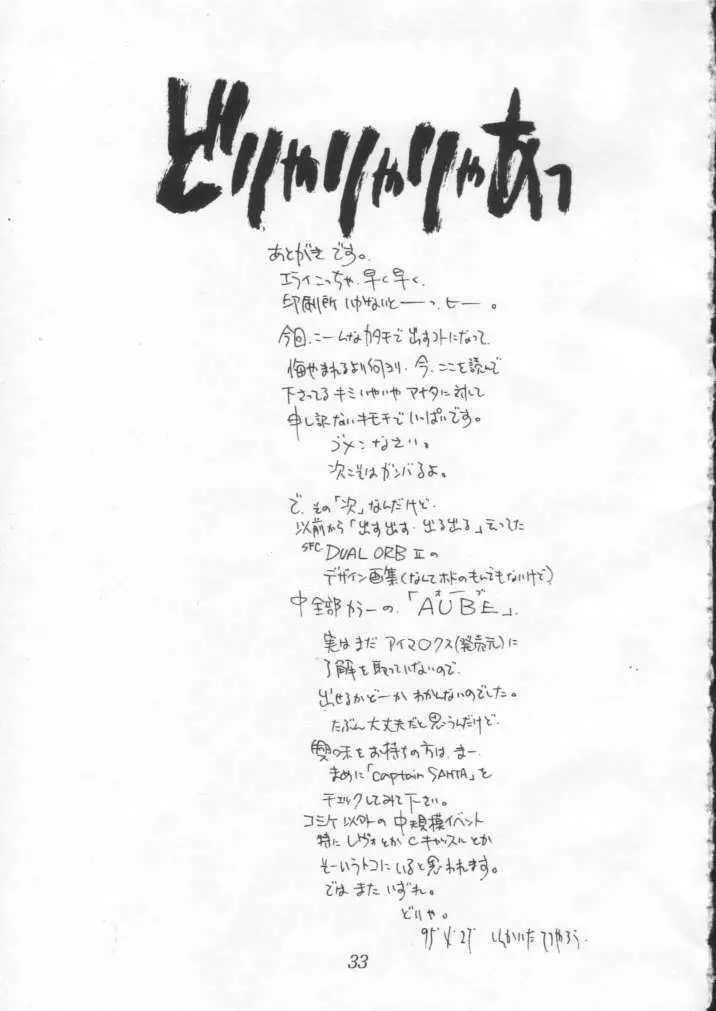 どりゃりゃりゃあっ
あとがきです。
エライこっちゃ、早く早く、
印刷所いかないとーっ、ヒー。
今回、こーんなカタチで出すコトになって、
悔やまれるより何より、今、ここを読んで
下さってるキミいやいやアナタに対して
申し訳ないキモチでいっぱいです。
ゴメンなさい。
次こそはガンバるよ。
で、その「次」なんだけど、
以前から「出す出す・出る出る」言ってた
SFC DUAL ORB Ⅱの
デザイン画集(なんてホドのもんでもないけど)
中全部カラーの、「AUBE」、
オーブ
実はまだアイマ○クス(発売元)に
了解を取っていないので、
出せるかどーかわかんないのでした。
たぶん大丈夫だと思うんだけど、
興味をお持ちの方は、まー、
まめに「captain SANTA」を
チェックしてみて下さい。
コミケ以外の中規模イベント
特にレヴォとかCキャッスルとか
そーいうトコにいると思われます。
ではまたいずれ。
どりゃ。
95'4'27'
33